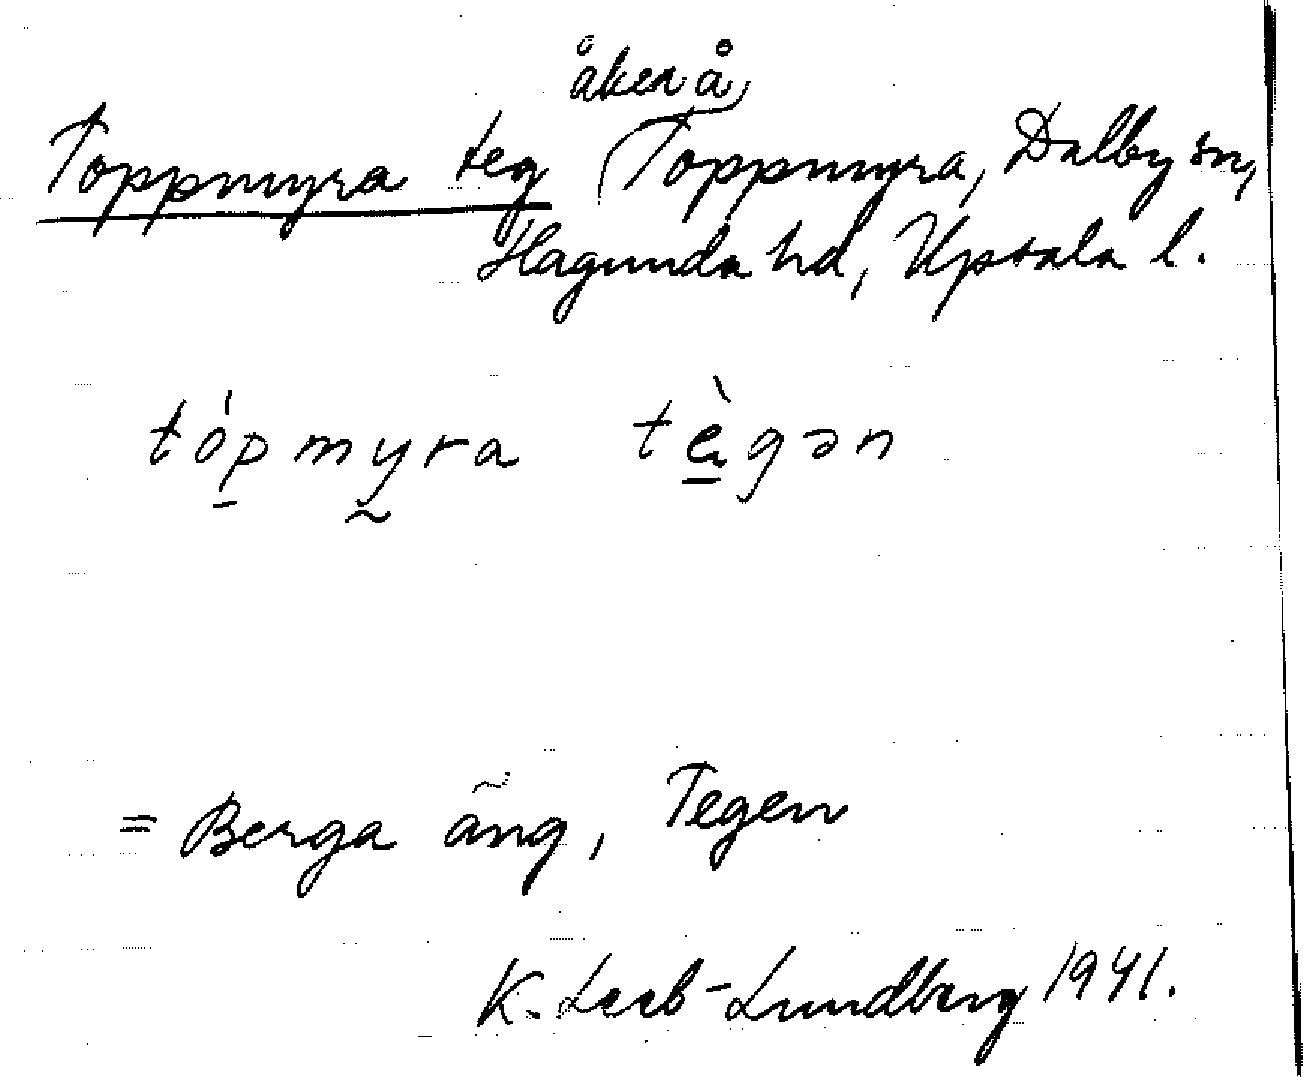 åker å
Toppmyra teg Toppmyra, Dalby sn,
Hagunda hd, Upsala l.
tópmyra tègən
= Berga äng, Tegen
K. Leeb-Lundberg 1941.